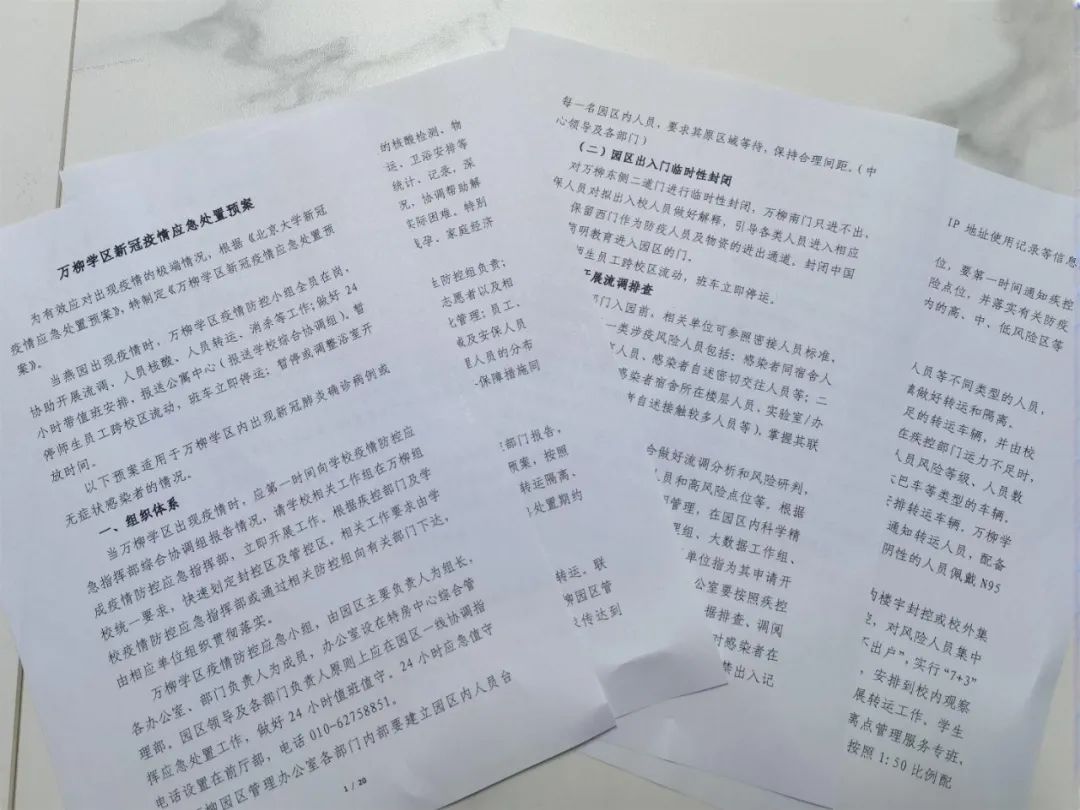 万柳学区新冠疫情应急处置预案
为有效应对出现疫情的极端情况，根据《北京大学新冠
疫情应急处置预案》，特制定《万柳学区新冠疫情应急处置预
案》。
当燕园出现疫情时，万柳学区疫情防控小组全员在岗，
协助开展流调、人员核酸、人员转运、消杀等工作；做好 24
小时带值班安排，报送公寓中心（报送学校综合协调组）。暂
停师生员工跨校区流动，班车立即停运；暂停或调整浴室开
放时间。
以下预案适用于万柳学区内出现新冠肺炎确诊病例或
无症状感染者的情况。
一、组织体系
当万柳学区出现疫情时，应第一时间向学校疫情防控应
急指挥部综合协调组报告情况，请学校相关工作组在万柳组
成疫情防控应急指挥部，立即开展工作。根据疾控部门及学
校统一要求，快速划定封控区及管控区。相关工作要求由学
校疫情防控应急指挥部或通过相关防控组向有关部门下达，
由相应单位组织贯彻落实。
万柳学区疫情防控应急小组，由园区主要负责人为组长，
各办公室、部门负责人为成员，办公室设在特房中心综合管
理部。园区领导及各部门负责人原则上应在园区一线协调指
挥应急处置工作，做好 24 小时值班值守。24 小时应急值守
电话设置在前厅部，电话 010-62758851。
柳园区管理办公室各部门内部要建立园区内人员台
1 / 20
的核酸检测、物
运、卫浴安排等
统计、记录，深
况，协调帮助解
实际困难。特别
怀孕、家庭经济
主防控组负责；
志愿者以及相
化管理；员工、
或及安保人员
理人员的分布
保障措施同
部门报告，
预案，按照
转运隔离、
处置期的
转运、联
柳园区管
传达到
每一名园区内人员，要求其原区域等待，保持合理间距。（中
心领导及各部门）
（二）园区出入门临时性封闭
对万柳东侧二道门进行临时性封闭，万柳南门只进不出，
保人员对拟出入校人员做好解释，引导各类人员进入相应
保留西门作为防疫人员及物资的进出通道，封闭中国
简明教育进入园区的门。
师生员工跨校区流动，班车立即停运。
开展流调排查
部门入园前，相关单位可参照密接人员标准，
一类涉疫风险人员包括：感染者同宿舍人
人员、感染者自述密切交往人员等；二
感染者宿舍所在楼层人员，实验室/办
者自述接触较多人员等），掌握其联
合做好流调分析和风险研判，
人员和高风险点位等。根据
管理，在园区内科学精
理组、大数据工作组、
单位指为其申请开
公室要按照疾控
据排查、调阅
对感染者在
禁出入记
IP 地址使用记录等信息
位，要第一时间通知疾控
险点位，并落实有关防疫
内的高、中、低风险区等
人员等不同类型的人员，
做好转运和隔离。
足的转运车辆，并由校
在疾控部门运力不足时，
人员风险等级、人员数
大巴车等类型的车辆。
安排转运车辆，万柳学
通知转运人员，配备
阴性的人员佩戴 N95
内楼宇封控或校外集
，对风险人员集中
不出户”，实行“7+3”
，安排到校内观察
展转运工作。学生
离点管理服务专班，
按照 1:50 比例配